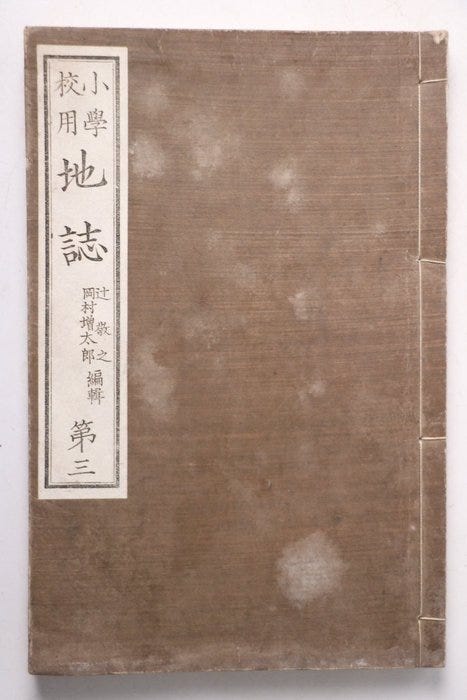 小學
校用
地誌
辻敬之
岡村增太郎
編輯
第三